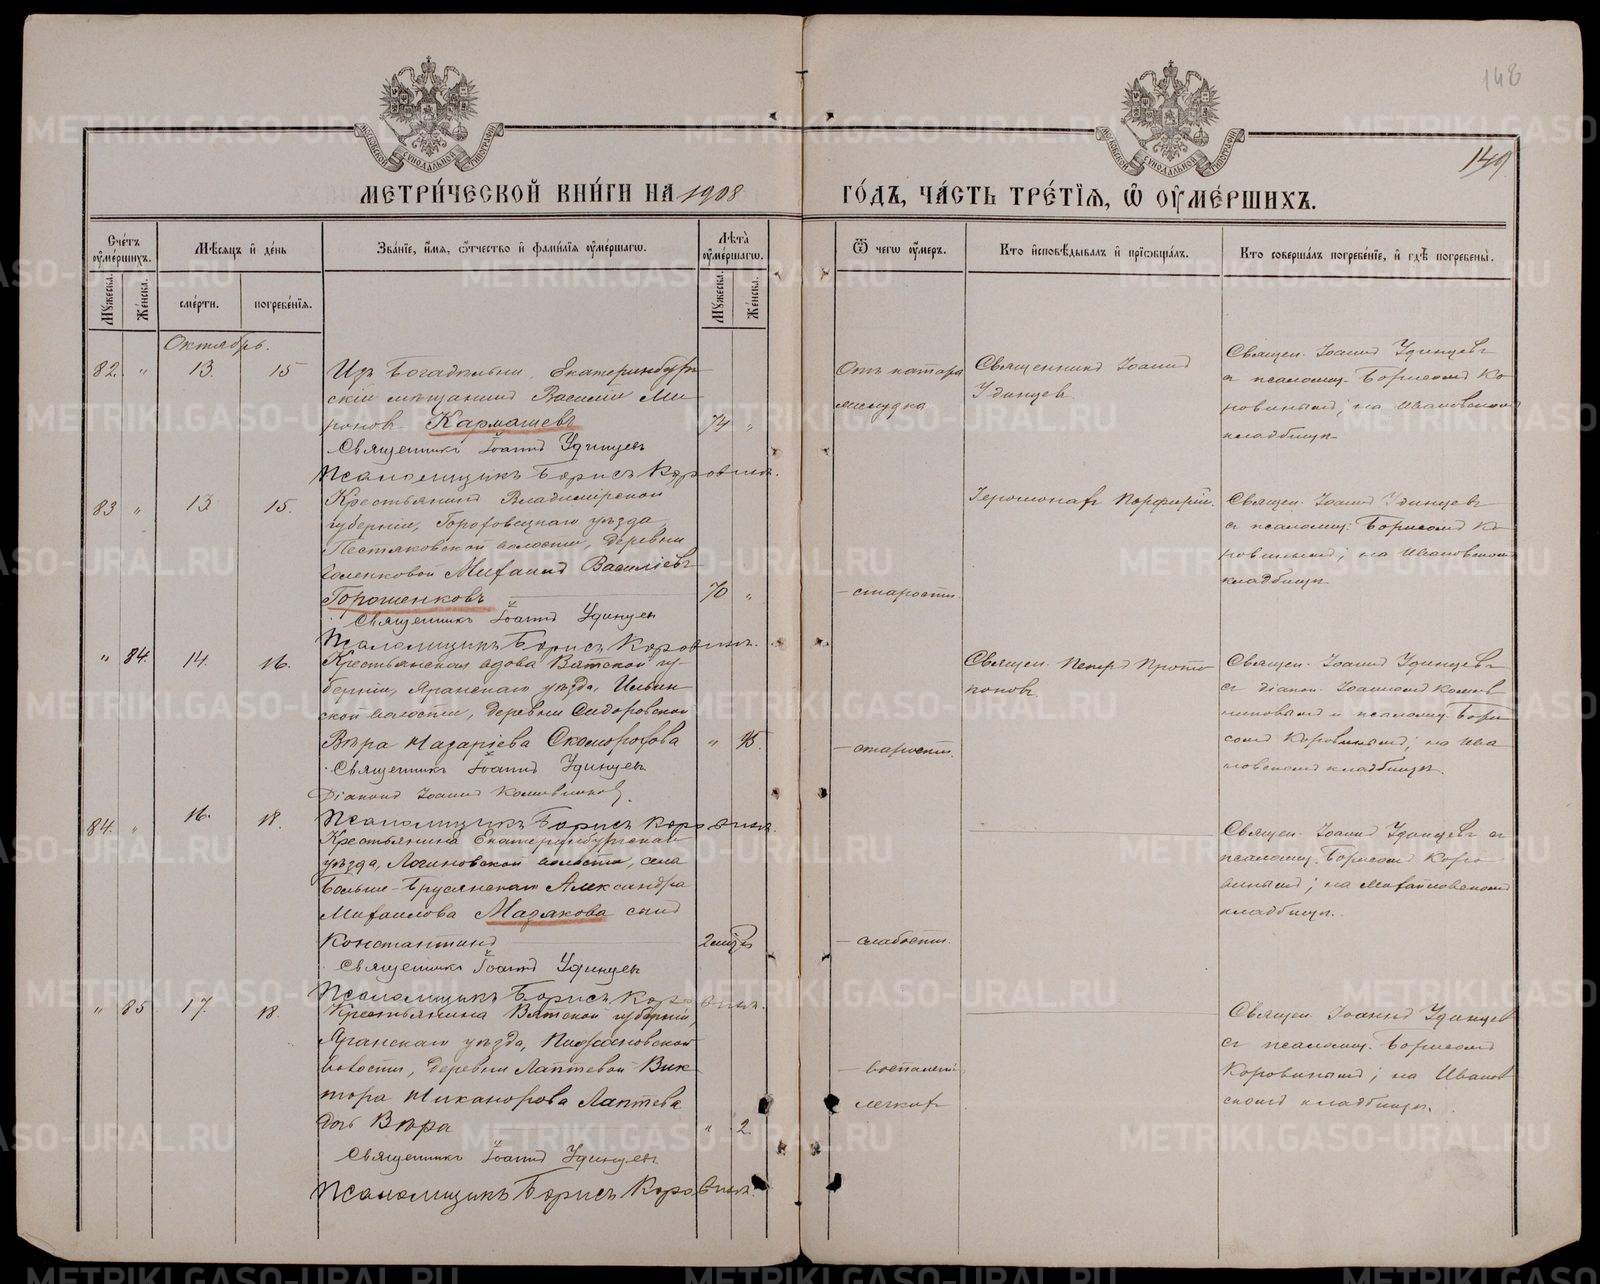 148
149
МЕТРИ́ЧЕСКОЙ КНИ́ГИ НА 1908 ГО́ДЪ, ЧА́СТЬ ТРЕ́ТІЯ, Ѡ ОУМЕ́РШИХЪ.
Сче́тъ оуме́ршихъ.
Мꙋжеска.
Же́нска.
Мѣ́сяцъ и де́нь
сме́рти.
погребе́нія.
Зва́ніе, и́мя, ѻ́тчество и фами́лія оуме́ршагѡ.
Лѣ́та оуме́ршагѡ.
Мꙋжеска.
Же́нска.
Ѿ чегѡ оу́меръ.
Кто и́сповѣ́дывалъ и прїѡбща́лъ.
Кто соверша́лъ погребе́ніе, и гдѣ̀ погребены̀.
Октябрь.
82. " 13. 15
Изъ Богадѣльни. Екатеринбург-
скій мѣщанинъ Василій Ми-
роновъ Кармашевъ 74 "
Священникъ Іоаннъ Удинцевъ
Псаломщикъ Борисъ Коровинъ.
Отъ катара
желудка
Священникъ Іоаннъ
Удинцев
Священ. Іоаннъ Удинцевъ
съ псаломщ. Борисомъ Ко-
ровинымъ; на Ивановском
кладбищѣ.
83 " 13 15.
Крестьянинъ Владимірской
губерніи, Гороховецкаго уѣзда,
Пестяковской волости, деревни
Михаилъ Василіевъ
Горошенковъ 70 "
Священникъ Іоаннъ Удинцев
Псаломщикъ Борисъ Коровинъ.
— старости.
Іеромонахъ Порфирій.
Священ. Іоаннъ Удинцевъ
съ псаломщ. Борисомъ Ко-
ровинымъ; на Ивановском
кладбищѣ.
" 84. 14. 16.
Крестьянская вдова Вятской гу-
берніи, Яранскаго уѣзда, Ильин-
ской волости, деревни Сидоровской
Вѣра Назаріева Скоморохова " 95.
Священникъ Іоаннъ Удинцевъ
Діаконъ Іоаннъ
Псаломщикъ Борисъ Коровинъ.
— старости.
Священ. Петръ Прото-
поповъ
Священ. Іоаннъ Удинцевъ
съ діакон. Іоанномъ
и псаломщ. Бори-
сомъ Коровинымъ; на Ива-
новскомъ кладбищѣ.
84. " 16. 18.
Крестьянина Екатеринбургскаго
уѣзда, Логиновской волости, села
Больше-Брусянскаго Александра
Михаилова Мазякова сынъ
Константинъ 2
Священникъ Іоаннъ Удинцев
Псаломщикъ Борисъ Коровинъ.
— слабости.
Священ. Іоаннъ Удинцевъ съ
псаломщ. Борисомъ Коро-
винымъ; на Михайловскомъ
кладбищѣ.
" 85. 17. 18.
Крестьянина Вятской губерніи,
Яранскаго уѣзда,
волости, деревни Лаптевой Вик-
тора Никанорова Лаптева
дочь Вѣра " 2.
Священникъ Іоаннъ Удинцевъ
Псаломщикъ Борисъ Коровинъ.
— воспаленія
легкихъ
Священ. Іоаннъ Удинцев
съ псаломщ. Борисомъ
Коровинымъ; на Иванов-
скомъ кладбищѣ.
METRIKI.GASO-URAL.RU